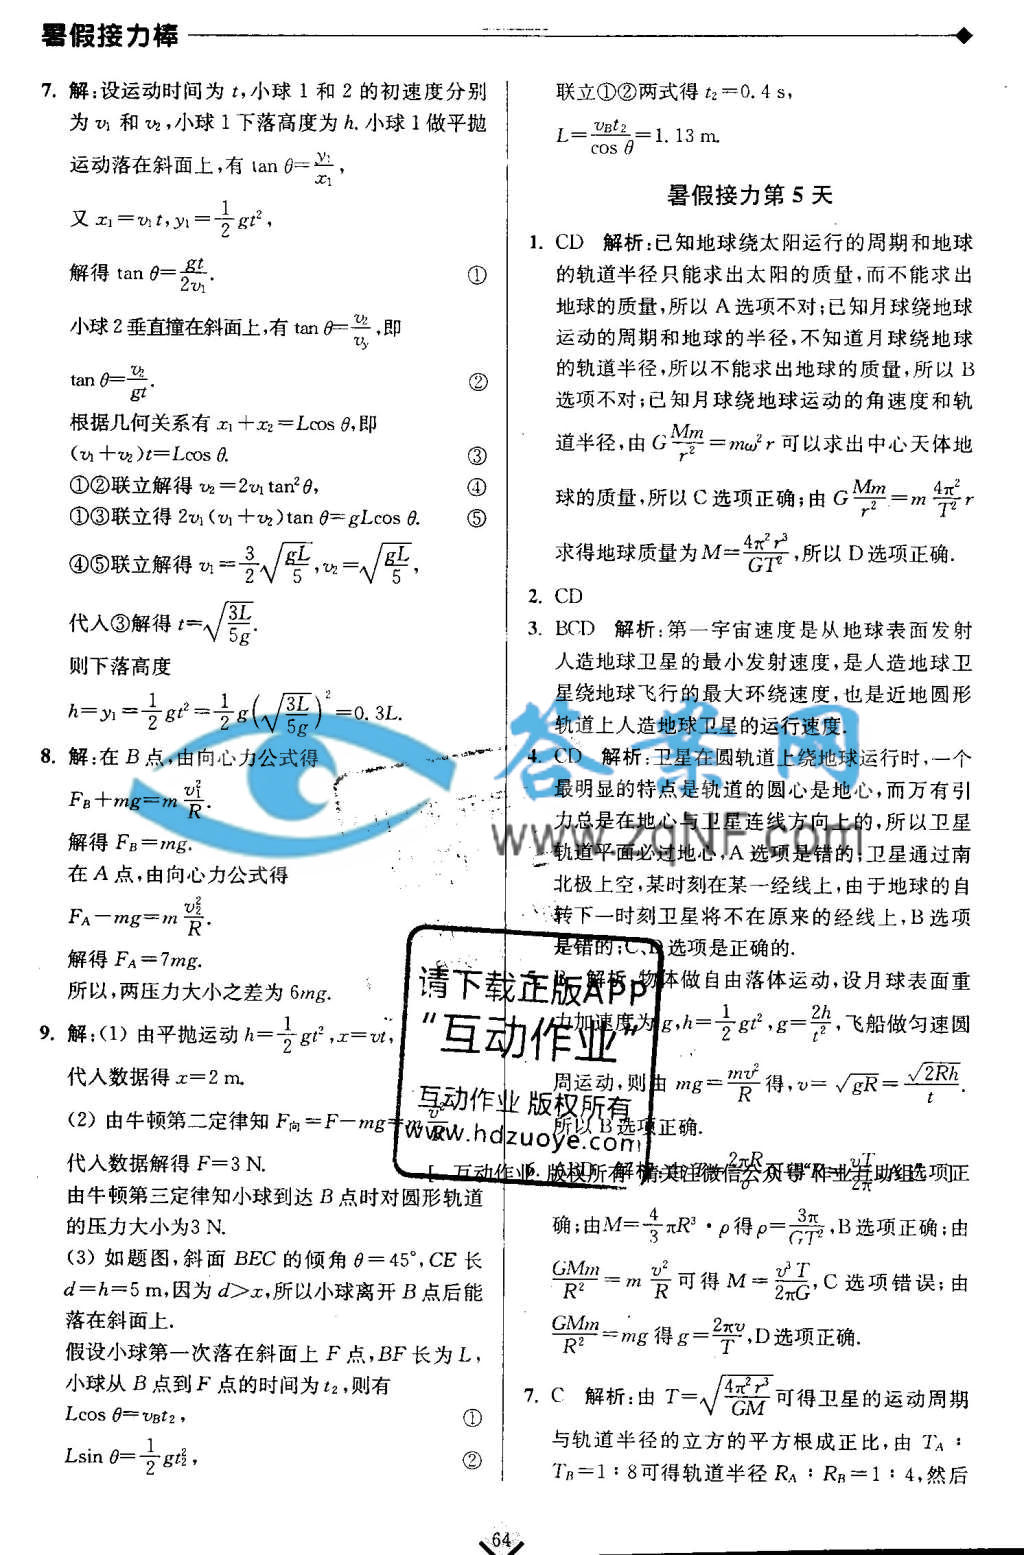 暑假接力棒
7. 解:设运动时间为 t,小球 1 和 2 的初速度分别
为 v₁ 和 v₂,小球 1 下落高度为 h. 小球 1 做平抛
运动落在斜面上,有 tan θ=y₁/x₁,
又 x₁=v₁t,y₁=1/2 gt²,
解得 tan θ=gt/2v₁. ①
小球 2 垂直撞在斜面上,有 tan θ=v₂/vy,即
tan θ=v₂/gt. ②
根据几何关系有 x₁+x₂=Lcos θ,即
(v₁+v₂)t=Lcos θ. ③
①②联立解得 v₂=2v₁tan²θ, ④
①③联立得 2v₁(v₁+v₂)tan θ=gLcos θ. ⑤
④⑤联立解得 v₁=3/2 √(gL/5),v₂=√(gL/5),
代入③解得 t=√(3L/5g).
则下落高度
h=y₁=1/2 gt²=1/2 g(√(3L/5g))²=0.3L.
8. 解:在 B 点,由向心力公式得
F_B+mg=m v₁²/R.
解得 F_B=mg.
在 A 点,由向心力公式得
F_A-mg=m v₂²/R.
解得 F_A=7mg.
所以,两压力大小之差为 6mg.
9. 解:(1) 由平抛运动 h=1/2 gt²,x=vt,
代入数据得 x=2 m.
(2) 由牛顿第二定律知 F向=F-mg=m v²/R
代入数据解得 F=3 N.
由牛顿第三定律知小球到达 B 点时对圆形轨道
的压力大小为3 N.
(3) 如题图,斜面 BEC 的倾角 θ=45°,CE 长
d=h=5 m,因为 d>x,所以小球离开 B 点后能
落在斜面上.
假设小球第一次落在斜面上 F 点,BF 长为 L,
小球从 B 点到 F 点的时间为 t₂,则有
Lcos θ=v_Bt₂, ①
Lsin θ=1/2 gt₂², ②
联立①②两式得 t₂=0.4 s,
L=v_Bt₂/cos θ=1.13 m.
暑假接力第 5 天
1. CD 解析:已知地球绕太阳运行的周期和地球
的轨道半径只能求出太阳的质量,而不能求出
地球的质量,所以 A 选项不对;已知月球绕地球
运动的周期和地球的半径,不知道月球绕地球
的轨道半径,所以不能求出地球的质量,所以 B
选项不对;已知月球绕地球运动的角速度和轨
道半径,由 G Mm/r²=mω²r 可以求出中心天体地
球的质量,所以 C 选项正确;由 G Mm/r²=m 4π²/T² r
求得地球质量为 M=4π²r³/GT²,所以 D 选项正确.
2. CD
3. BCD 解析:第一宇宙速度是从地球表面发射
人造地球卫星的最小发射速度,是人造地球卫
星绕地球飞行的最大环绕速度,也是近地圆形
轨道上人造地球卫星的运行速度.
4. CD 解析:卫星在圆轨道上绕地球运行时,一个
最明显的特点是轨道的圆心是地心,而万有引
力总是在地心与卫星连线方向上的,所以卫星
轨道平面必过地心,A 选项是错的;卫星通过南
北极上空,某时刻在某一经线上,由于地球的自
转下一时刻卫星将不在原来的经线上,B 选项
是错的;C、D 选项是正确的.
5. B 解析:物体做自由落体运动,设月球表面重
力加速度为 g,h=1/2 gt²,g=2h/t²,飞船做匀速圆
周运动,则由 mg=mv²/R 得,v=√gR=√2Rh/t.
所以 B 选项正确.
6. ABD 解析: 选项正
确;由M=4/3 πR³·ρ得ρ=3π/GT²,B选项正确;由
GMm/R²=m v²/R 可得 M=v³T/2πG,C 选项错误;由
GMm/R²=mg 得 g=2πv/T,D选项正确.
7. C 解析:由 T=√(4π²r³/GM)可得卫星的运动周期
与轨道半径的立方的平方根成正比,由 T_A:
T_B=1:8可得轨道半径 R_A:R_B=1:4,然后
答案网
www.zqNF.com
请下载正版APP
“互动作业”
互动作业 版权所有
www.hdzuoye.com
互动作业 版权所有 请关注微信公众号“作业互助组”
64